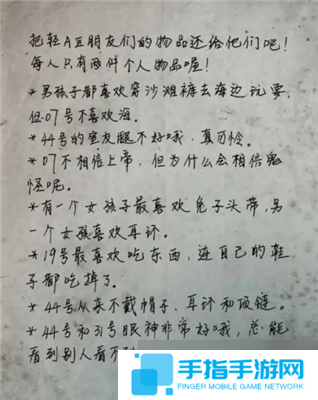 把轻A区朋友们的物品还给他们吧!
每人只有两件个人物品喔!
*男孩子都喜欢穿沙滩裤去海边玩耍,
但07号不喜欢海。
*44号的室友腿不好哦,真可怜。
*07不相信上帝,但为什么会相信鬼
怪呢。
*有一个女孩子最喜欢兔子头带,另
一个女孩喜欢耳环。
*19号最喜欢吃东西,连自己的鞋
子都吃掉了。
*44号从来不戴帽子、耳环和项链。
*44号和31号眼神非常好哦,总能
看到别人看不到
手指手游网
FINGER MOBILE GAME NETWORK